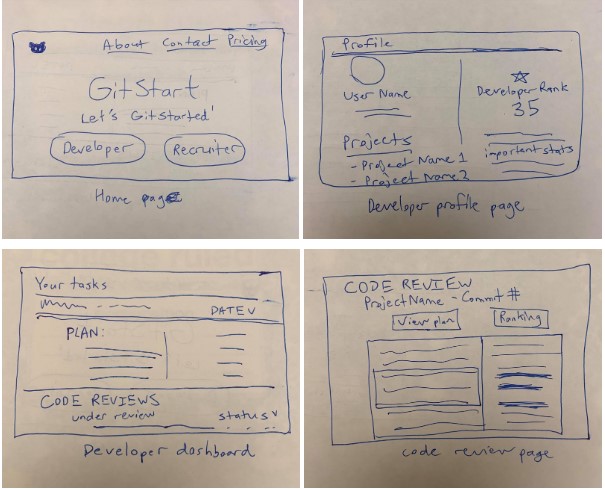 About Contact Pricing
GitStart
Let's Gitstarted!
Developer Recruiter
Home page
Profile
User Name
Projects
- Project Name 1
- Project Name 2
Developer Rank
35
important stats
Developer profile page
Your tasks
DATE V
PLAN:
CODE REVIEWS
under review status v
Developer dashboard
CODE REVIEW
Project Name - Commit #
View plan Ranking
code review page